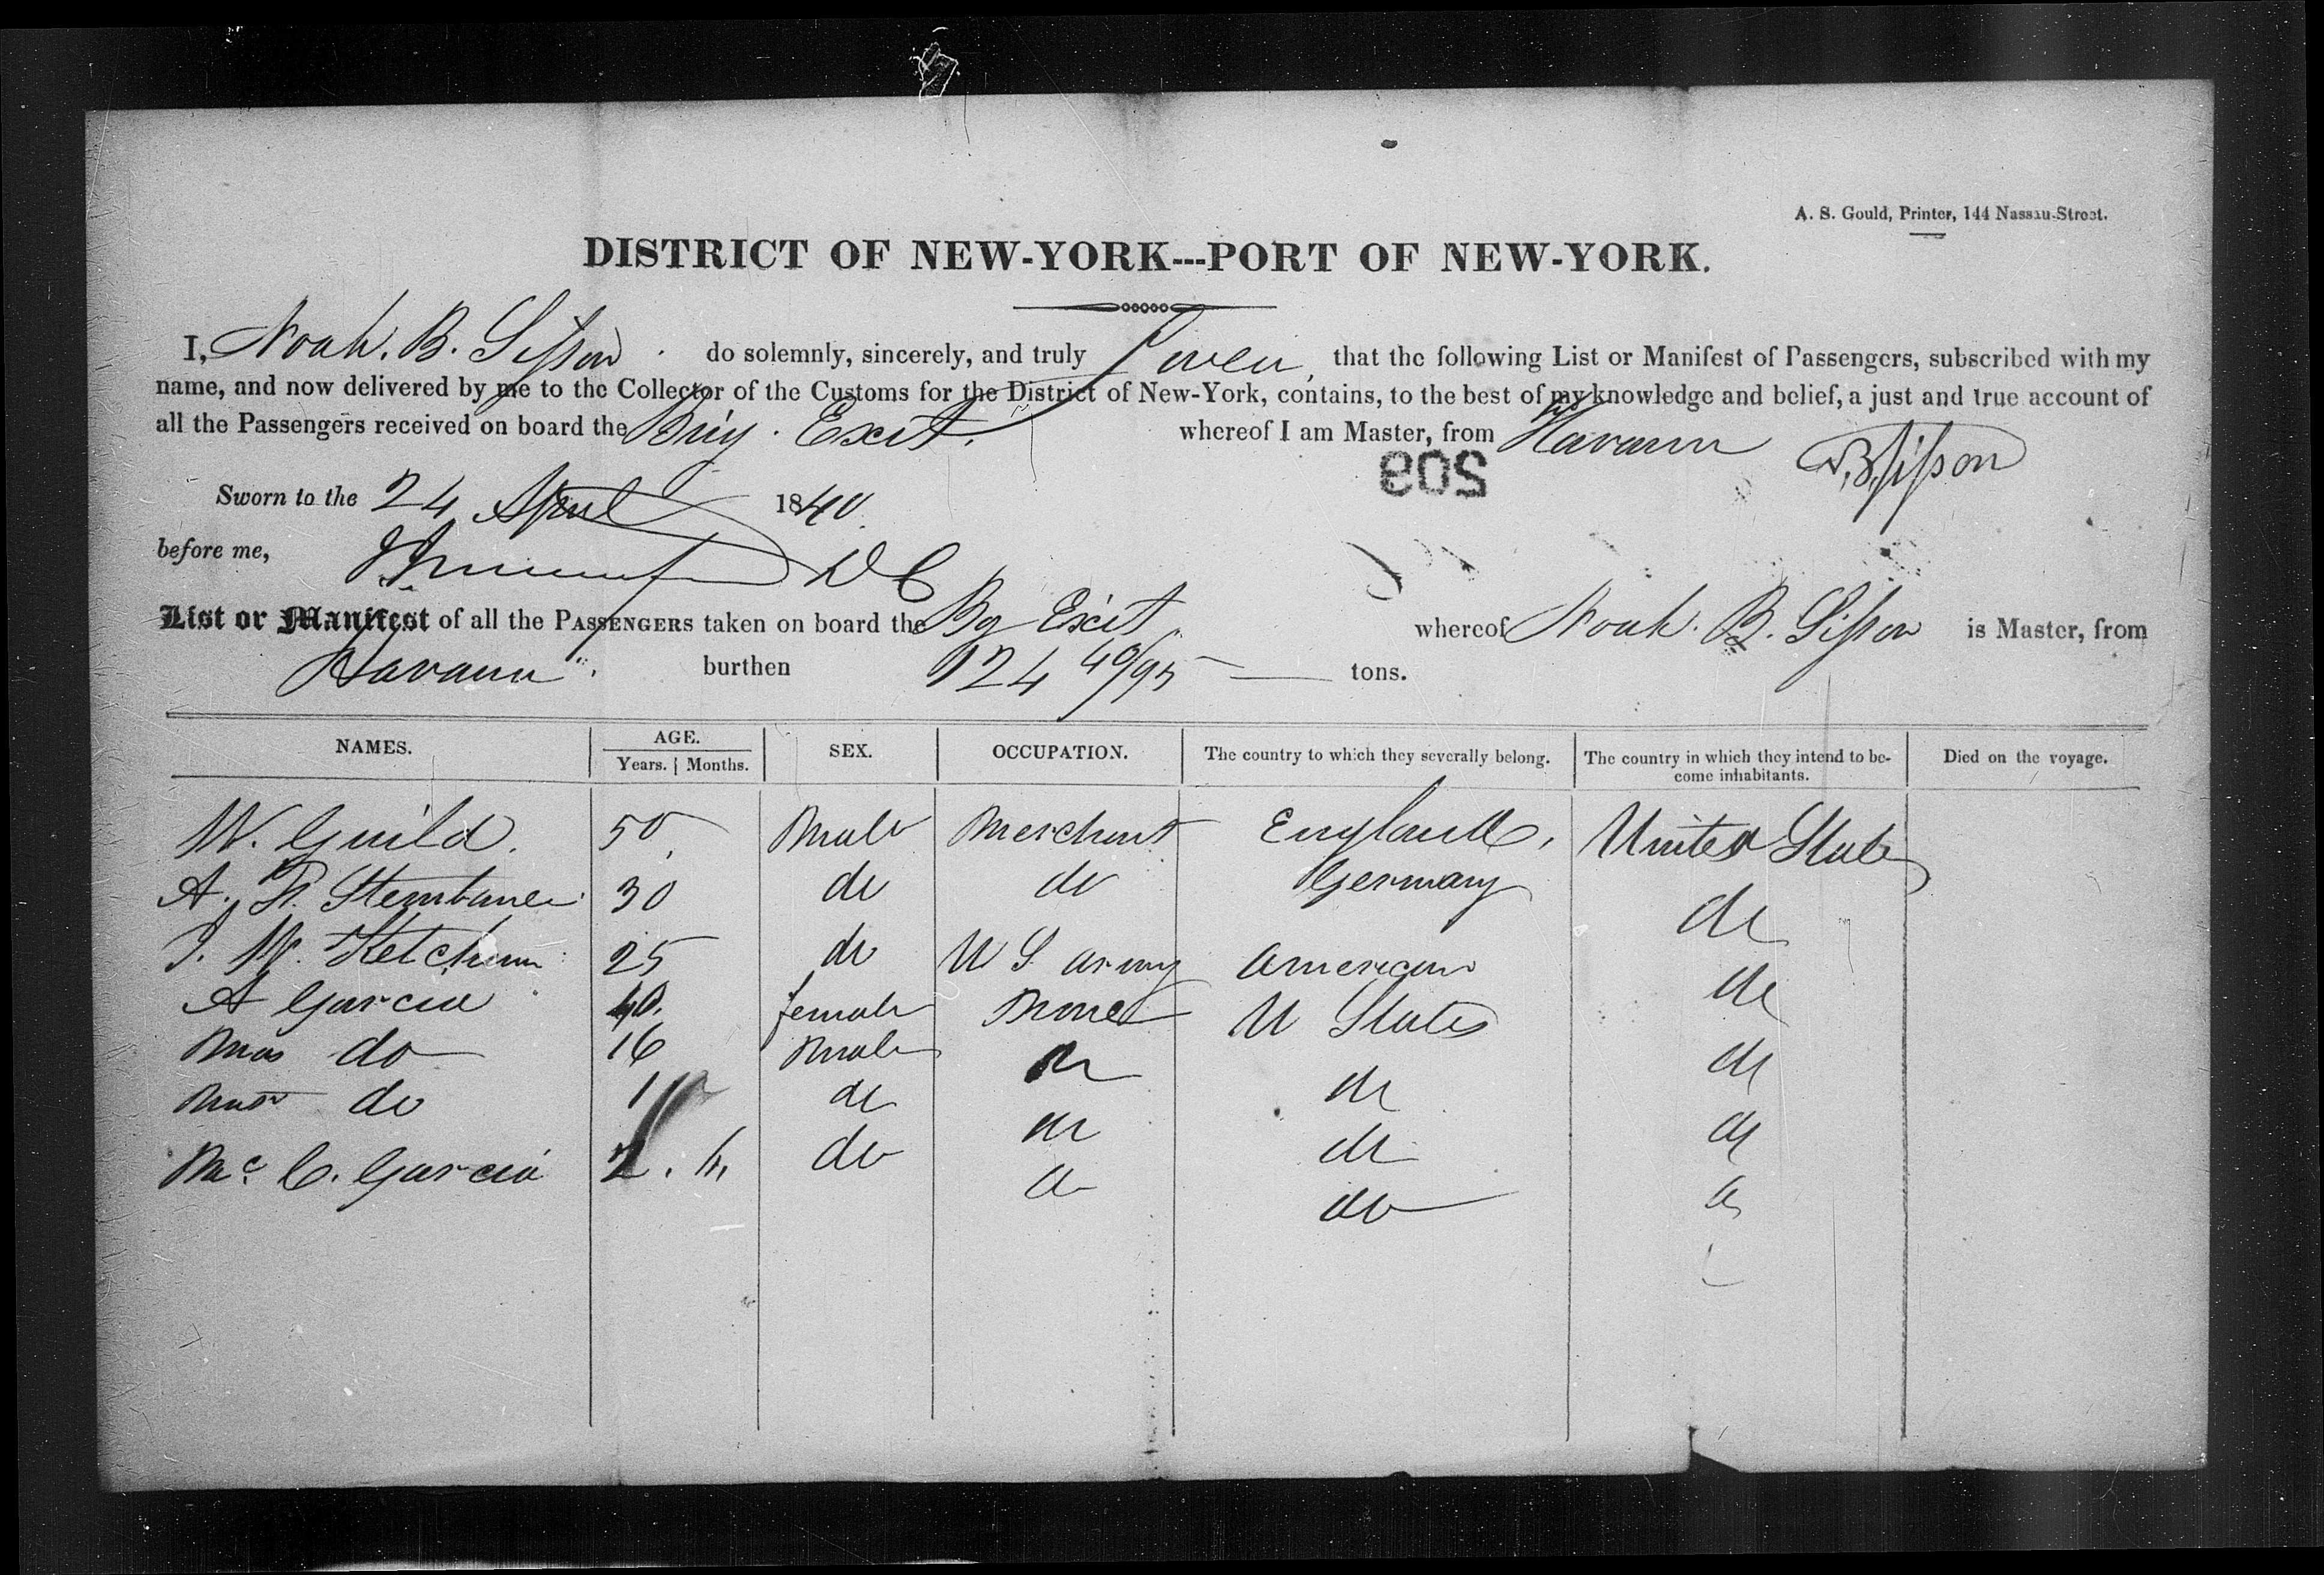 A. S. Gould, Printer, 144 Nassau-Street.
DISTRICT OF NEW-YORK---PORT OF NEW-YORK.
I, Noah. B. Sisson. do solemnly, sincerely, and truly Swear, that the following List or Manifest of Passengers, subscribed with my
name, and now delivered by me to the Collector of the Customs for the District of New-York, contains, to the best of my knowledge and belief, a just and true account of
all the Passengers received on board the Brig. Exit. whereof I am Master, from Havana
N. B. Sisson
508
Sworn to the 24 April 1840.
before me, DC
List or Manifest of all the PASSENGERS taken on board the Bg Exit whereof Noah. B. Sisson is Master, from
Havana burthen 124 40/95 tons.
NAMES. AGE. SEX. OCCUPATION. The country to which they severally belong. The country in which they intend to be-come inhabitants. Died on the voyage.
Years. Months.
W. Guild. 50 Male Merchant England, United States
A. 30 do do Germany do
J. W. Ketchum 25 do U S army American do
A Garcia 40. female None U States do
Mas do 16 Male do do do
Mas do do do do do
Mc C. Garcia 2. do do do do